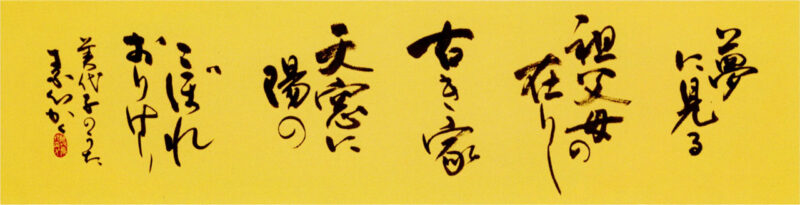 夢
に見る
祖父母の
在りし
古き家
天窓に
陽の
こぼれ
おりけり
美代子のうた